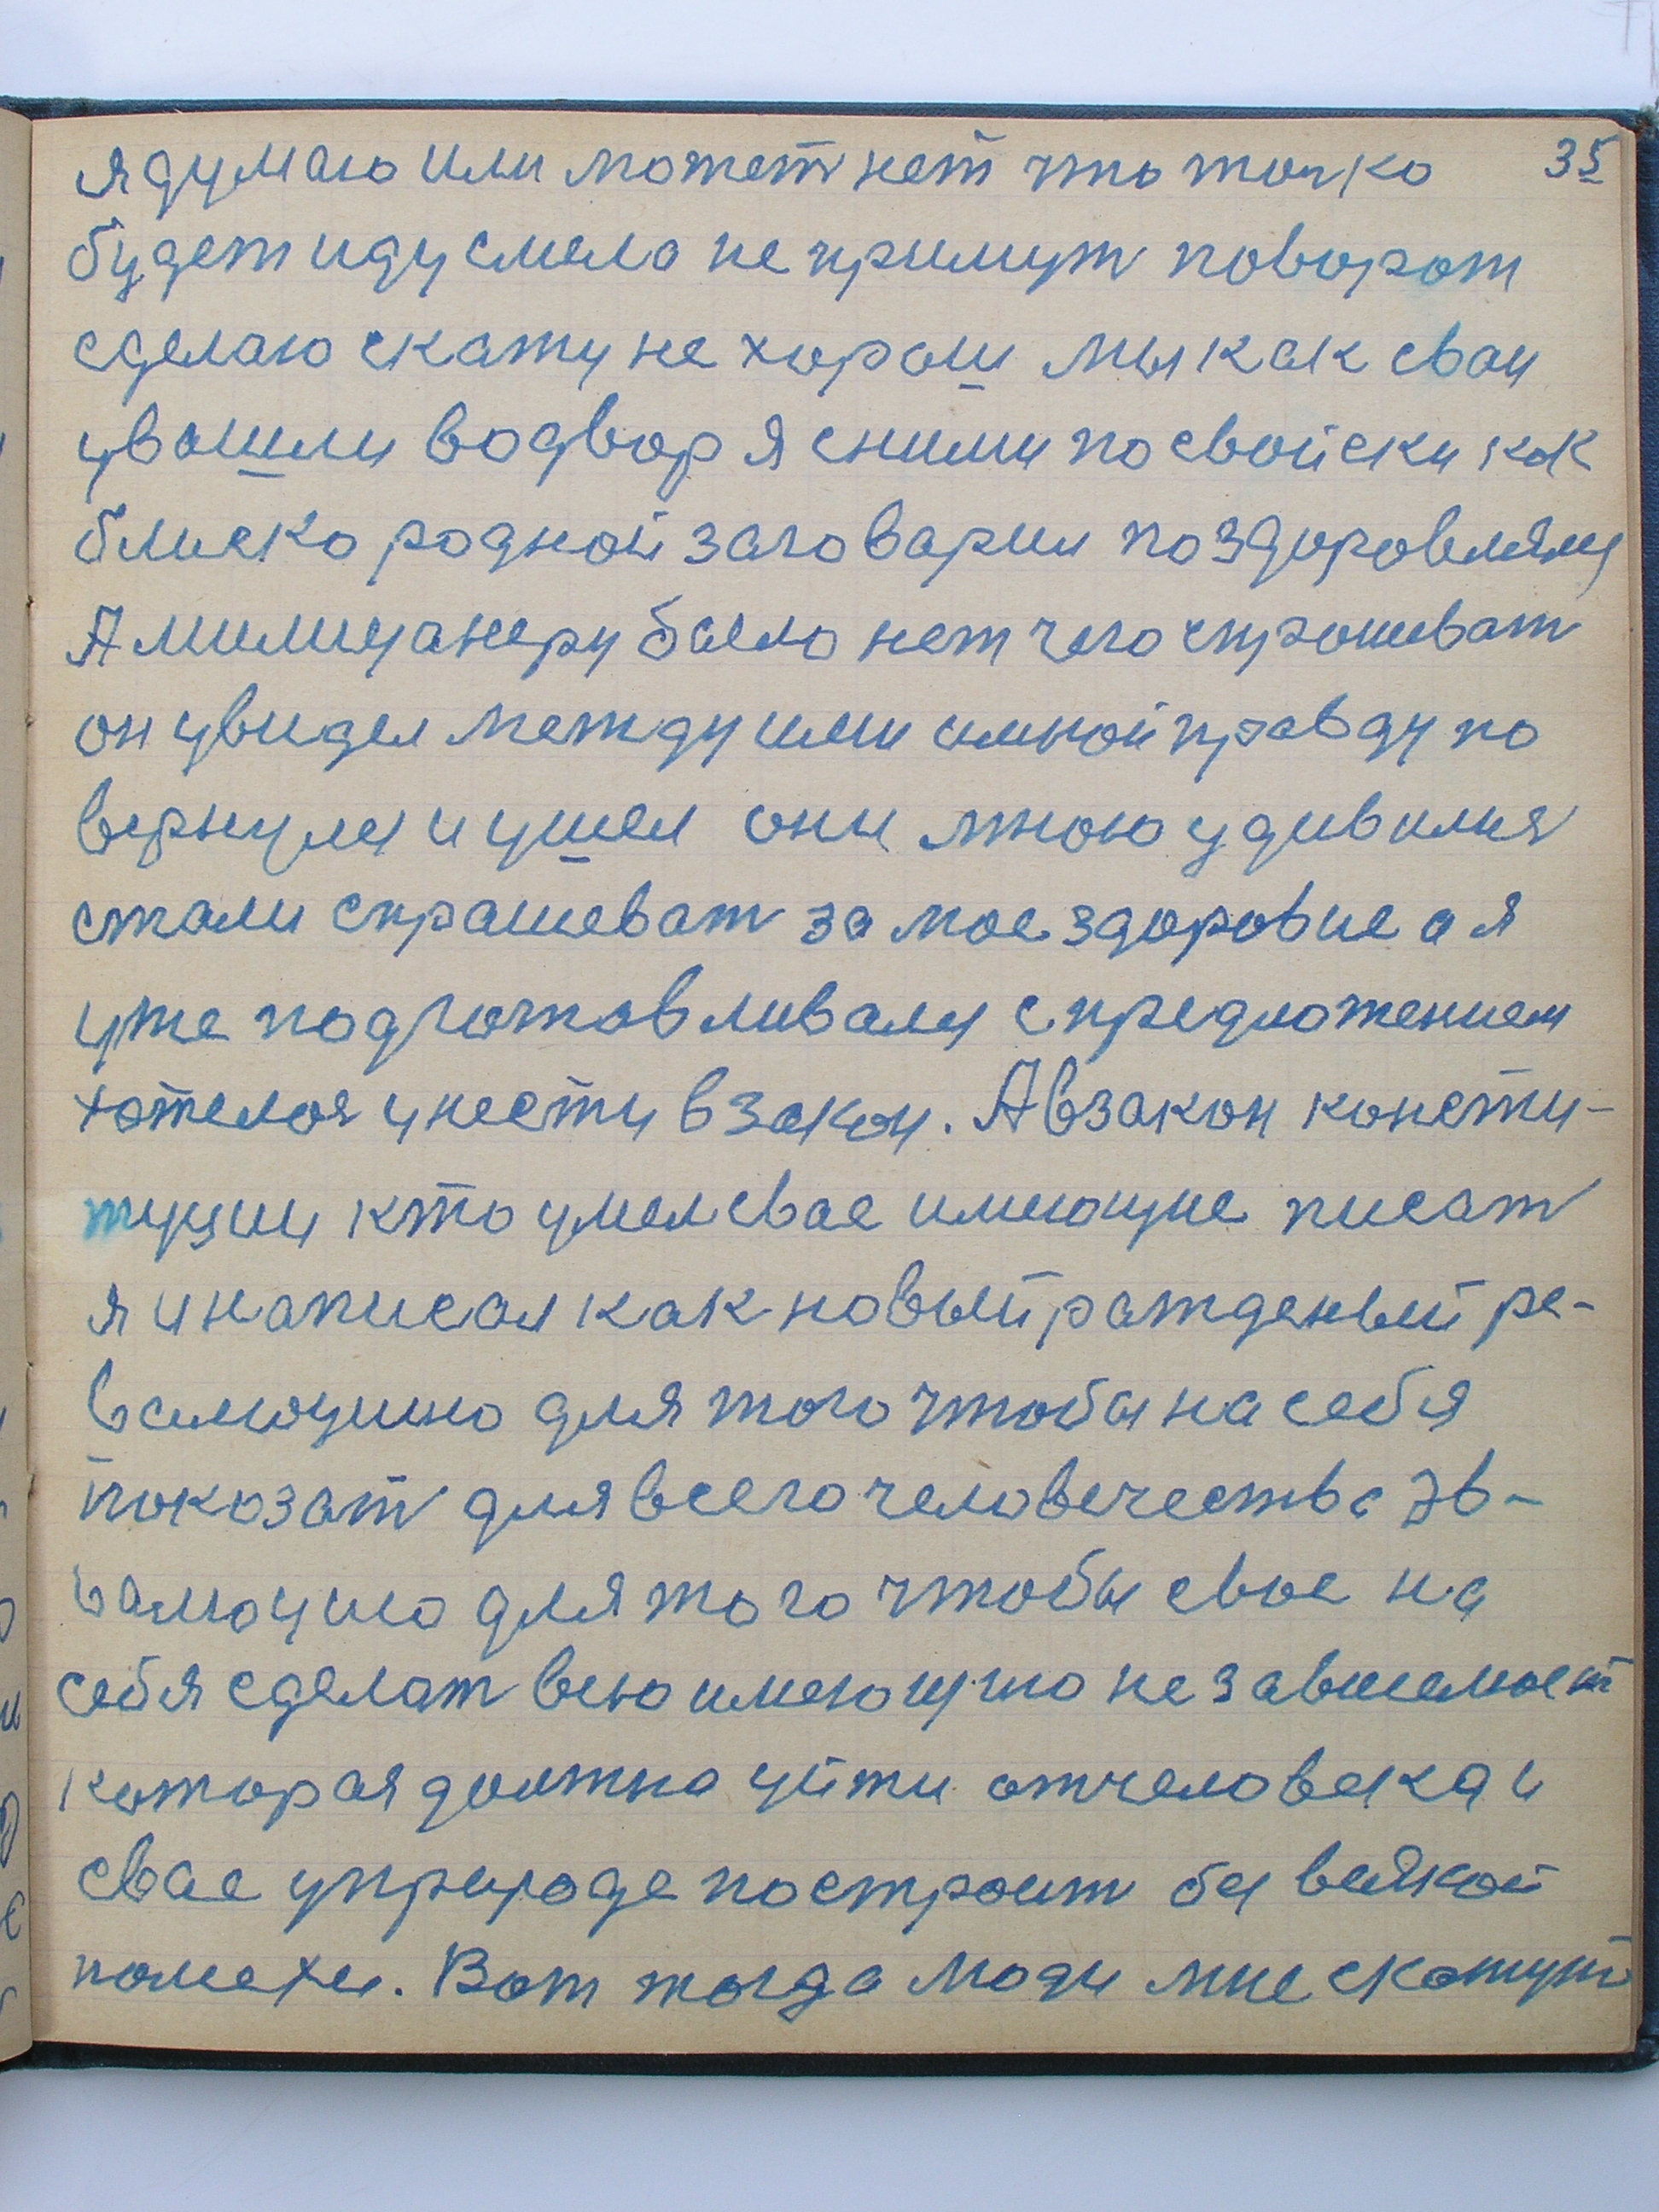 35
я думаю или может нет что точко
будет иду смело не примут поворот
сделаю скажу не хорош мы как свои
увошли во двор я сними по свойски как
блиско родной заговарил поздоровлялся
А милицанеру было нет чего спрошиват
он увидел между ими имной правду по
вернулся и ушел они мною удивилися
стали спрашеват за мое здоровие а я
уже подготовливался с предложением
хотелоя унести в закон. А в закон консти-
туции кто умел свае имеющие писат
я и написал как новый рожденый ре-
валюцию для того чтобы на себя
показат для всего человечества эв-
валюцию для того чтобы свое на
себя сделат всю имеющую независимост
которая должна уйти от человека и
свае у природе построит бы всякой
помехи. Вот тогда люди мне скажут